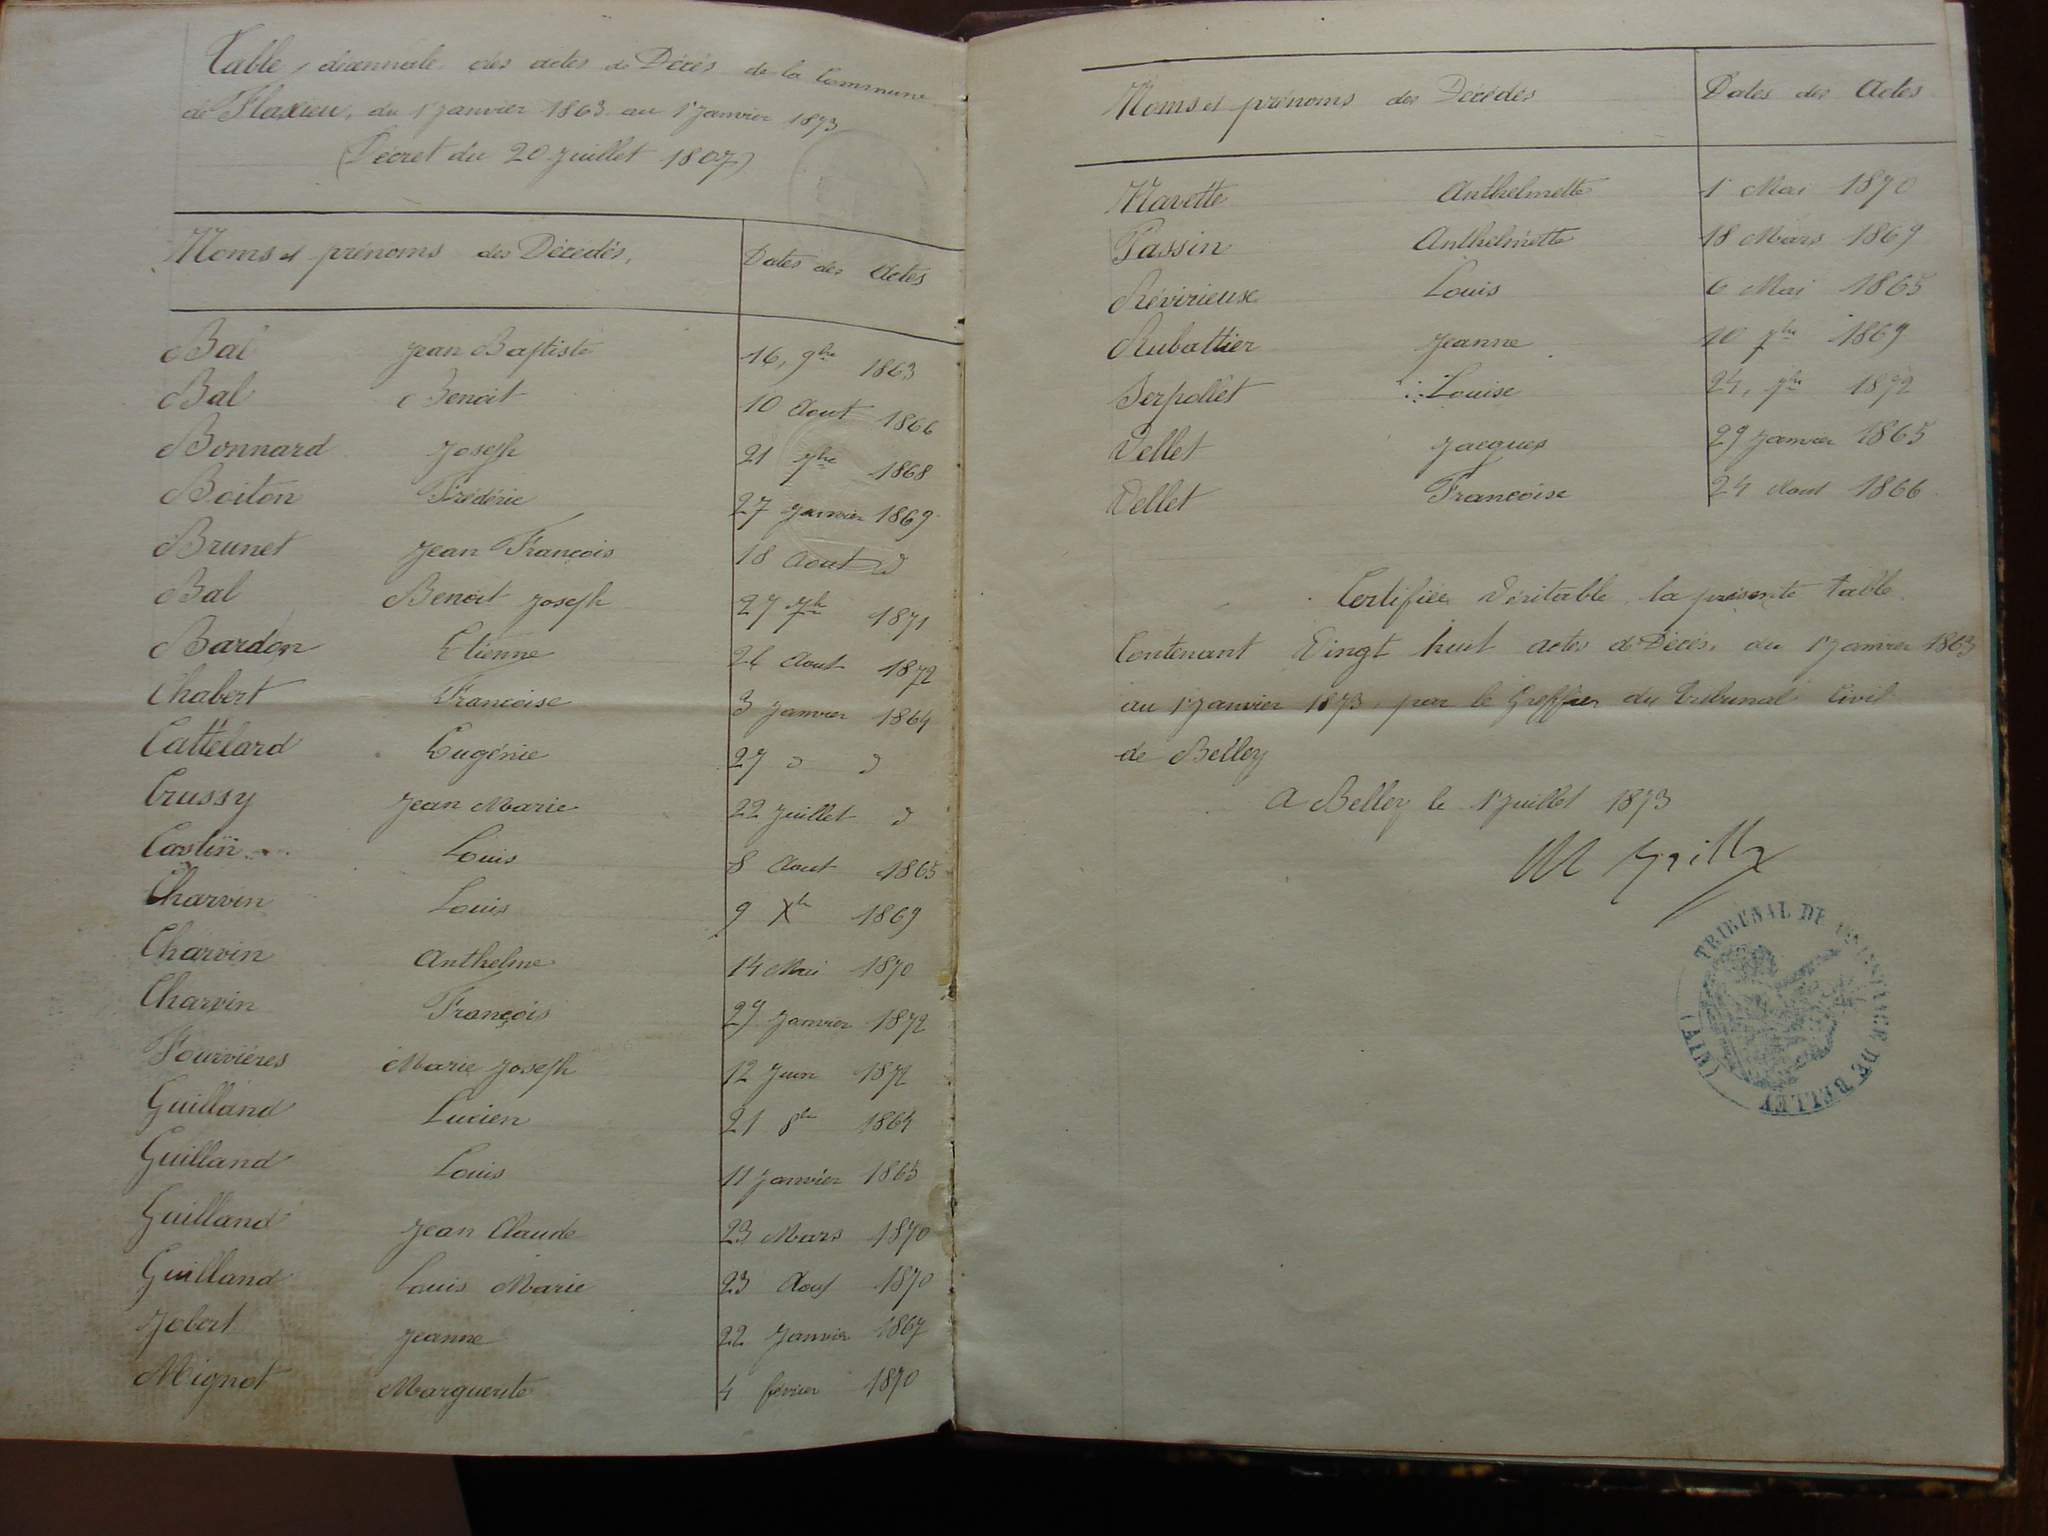 Table décennale des actes de Décès de la Commune
de Flaxieu, du 1er Janvier 1863 au 1er Janvier 1873
(Décret du 20 Juillet 1807)
Noms et prénoms des Décédés, Dates des Actes
Bal Jean Baptiste 16, 9bre 1863
Bal Benoit 10 Aout 1866
Bonnard Joseph 21 7bre 1868
Boiton Frédéric 27 Janvier 1869
Brunet Jean François 18 Aout d
Bal Benoit Joseph 27 7bre 1871
Bardon Etienne 26 Aout 1872
Chabert Francoise 3 Janvier 1864
Cattelard Eugénie 27 d d
Crussy Jean Marie 22 Juillet d
Castin Louis 8 Aout 1865
Charvin Louis 9 Xbre 1869
Charvin Anthelme 14 Mai 1870
Charvin François 29 Janvier 1872
Fourvières Marie Joseph 12 Juin 1872
Guilland Lucien 21 8bre 1864
Guilland Louis 11 Janvier 1865
Guilland Jean Claude 23 Mars 1870
Guilland Louis Marie 23 Aout 1870
Jobert Jeanne 22 Janvier 1867
Mignot Marguerite 4 février 1870
Noms et prénoms des Décédés Dates des Actes
Navette Anthelmette 1er Mai 1870
Passin Anthelmette 18 Mars 1869
Révirieuse Louis 6 Mai 1865
Rubattier Jeanne 10 7bre 1869
Serpollet Louise 24, 7bre 1872
Vellet Jacques 29 Janvier 1865
Vellet Francoise 24 Aout 1866
Certifiée Véritable la présente table
Contenant Vingt huit actes de Décès, du 1er Janvier 1863
au 1er Janvier 1873, par le Greffier du Tribunal Civil
de Belley
A Belley le 1er Juillet 1873
TRIBUNAL DE 1ERE INSTANCE DE BELLEY
(AIN)